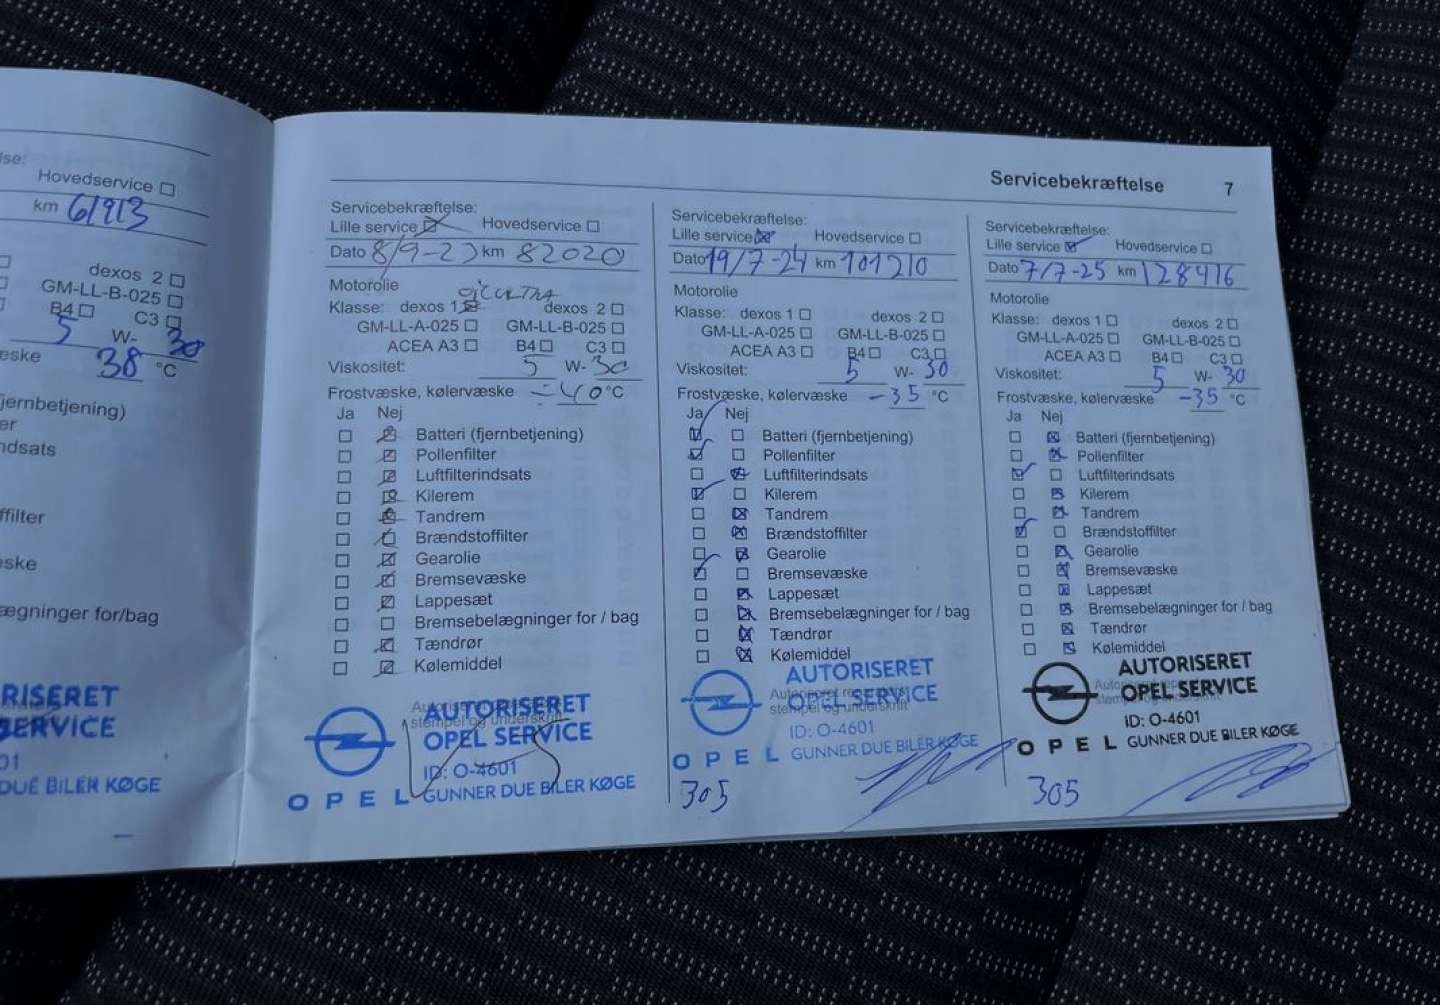 lse:
Hovedservice
km 61913
dexos 2
GM-LL-B-025
B4 C3
5 W- 30
æske 38 °C
jernbetjening)
er
ndsats
ffilter
ske
ægninger for/bag
RISERET
SERVICE
01
DUE BILER KØGE
Servicebekræftelse 7
Servicebekræftelse:
Lille service Hovedservice
Dato 8/9-23 km 82020
Motorolie
Klasse: dexos 1 dexos 2
GM-LL-A-025 GM-LL-B-025
ACEA A3 B4 C3
Viskositet: 5 W- 30
Frostvæske, kølervæske -40 °C
Ja Nej
Batteri (fjernbetjening)
Pollenfilter
Luftfilterindsats
Kilerem
Tandrem
Brændstoffilter
Gearolie
Bremsevæske
Lappesæt
Bremsebelægninger for / bag
Tændrør
Kølemiddel
AUTORISERET
stempel og underskrift
OPEL SERVICE
ID: O-4601
OPEL GUNNER DUE BILER KØGE
Servicebekræftelse:
Lille service Hovedservice
Dato 19/7-24 km 101210
Motorolie
Klasse: dexos 1 dexos 2
GM-LL-A-025 GM-LL-B-025
ACEA A3 B4 C3
Viskositet: 5 W- 30
Frostvæske, kølervæske -35 °C
Ja Nej
Batteri (fjernbetjening)
Pollenfilter
Luftfilterindsats
Kilerem
Tandrem
Brændstoffilter
Gearolie
Bremsevæske
Lappesæt
Bremsebelægninger for / bag
Tændrør
Kølemiddel
AUTORISERET
OPEL SERVICE
stempel og underskrift
ID: O-4601
OPEL GUNNER DUE BILER KØGE
305
Servicebekræftelse:
Lille service Hovedservice
Dato 7/7-25 km 128416
Motorolie
Klasse: dexos 1 dexos 2
GM-LL-A-025 GM-LL-B-025
ACEA A3 B4 C3
Viskositet: 5 W- 30
Frostvæske, kølervæske -35 °C
Ja Nej
Batteri (fjernbetjening)
Pollenfilter
Luftfilterindsats
Kilerem
Tandrem
Brændstoffilter
Gearolie
Bremsevæske
Lappesæt
Bremsebelægninger for / bag
Tændrør
Kølemiddel
AUTORISERET
OPEL SERVICE
ID: O-4601
OPEL GUNNER DUE BILER KØGE
305